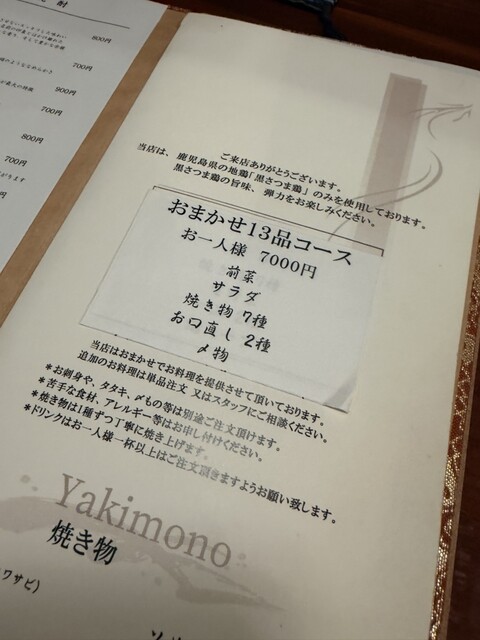 酎
800円
700円
900円
700円
800円
700円
ご来店ありがとうございます。
当店は、鹿児島県の地鶏「黒さつま鶏」のみを使用しております。
黒さつま鶏の旨味、弾力をお楽しみください。
おまかせ13品コース
お一人様 7000円
前菜
サラダ
焼き物 7種
お口直し 2種
〆物
当店はおまかせでお料理を提供させて頂いております。
追加のお料理は単品注文 又はスタッフにご相談ください。
*お刺身や、タタキ、〆もの等は別途ご注文頂けます。
*苦手な食材、アレルギー等はお申し付けください。
*焼き物は1種ずつ丁寧に焼き上げます。
*ドリンクはお一人様一杯以上はご注文頂きますようお願い致します。
Yakimono
焼き物
ワサビ)